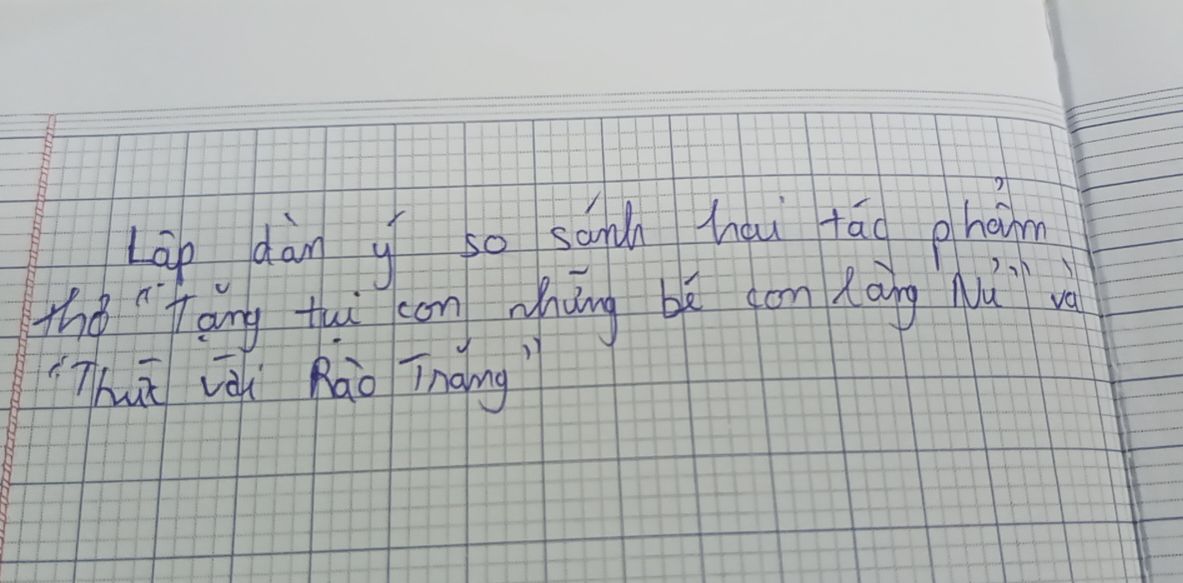 Lập dàn ý so sánh hai tác phẩm
thơ "Tặng tụi con những bé con làng Nủ" và
"Thưa với Rào Trăng"